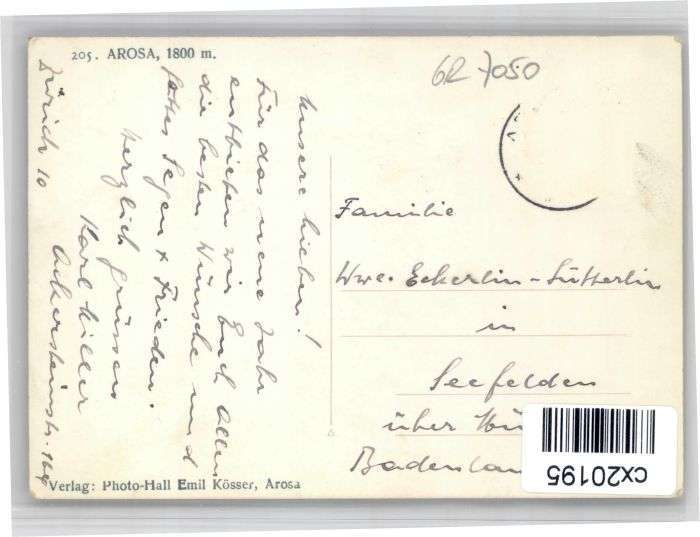 205. AROSA, 1800 m.
GR 7050
Unsere Lieben!
Für das neue Jahr
entbieten wir Euch Allen
die besten Wünsche und
Gottes Segen & Frieden.
Herzlich grüssen
Karl Hiller
Ackersteinstr. 164
Zürich 10
Familie
Wwe. Eckerlin-Sütterlin
in
Seefelden
über
Verlag: Photo-Hall Emil Kösser, Arosa
cx20195